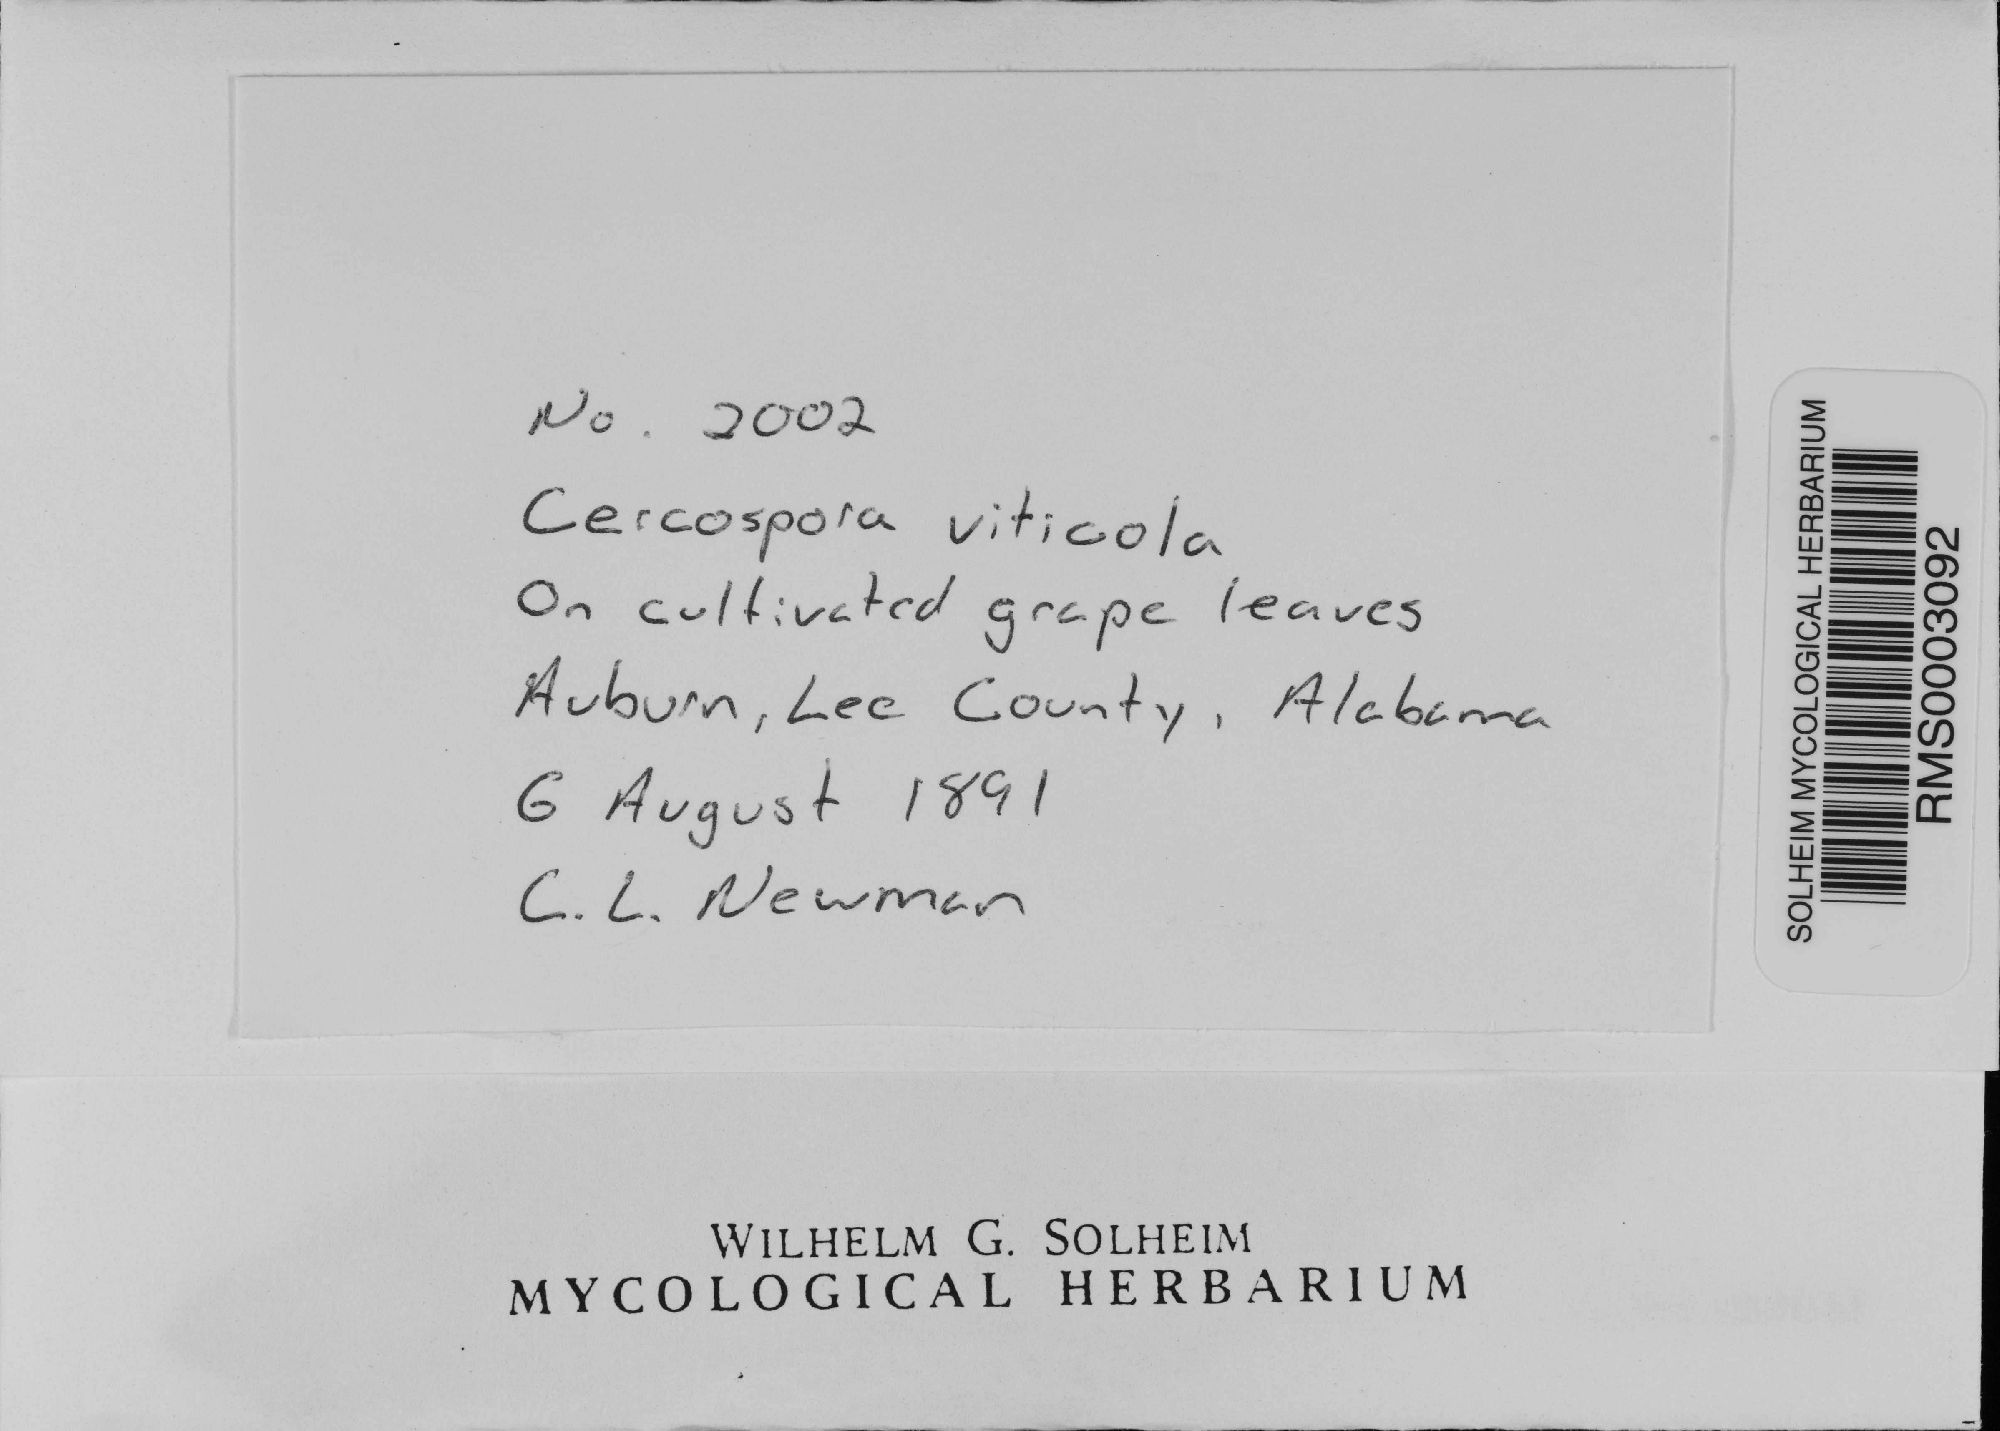 No. 2002
Cercospora viticola
On cultivated grape leaves
Auburn, Lee County, Alabama
6 August 1891
C. L. Newman
SOLHEIM MYCOLOGICAL HERBARIUM
RMS0003092
WILHELM G. SOLHEIM
MYCOLOGICAL HERBARIUM